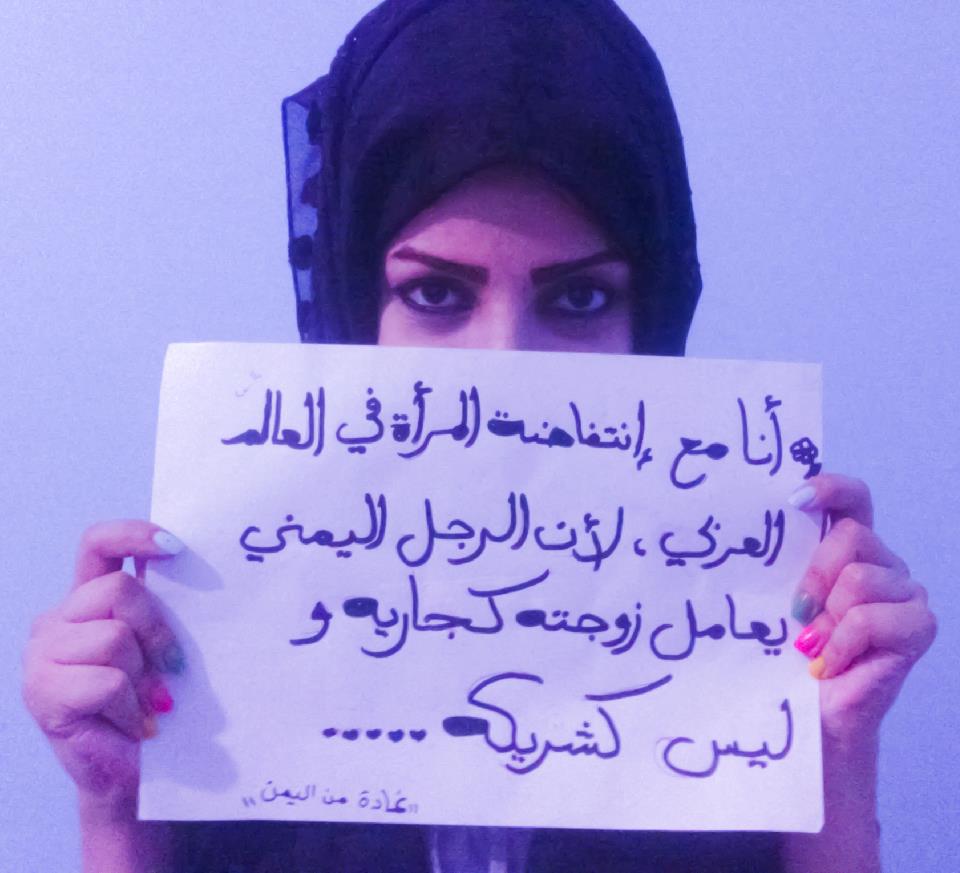 أنا مع إنتفاضة المرأة في العالم
العربي ، لأن الرجل اليمني
يعامل زوجته كجاريه و
ليس كشريكه .....
"غادة من اليمن"